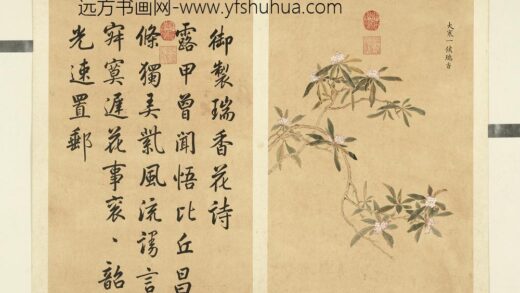 远方书画网-www.yfshuhua.com
大寒一候瑞香
御製瑞香花詩
露甲曾聞悟比丘昌
條獨弄紫風流謗言
寂寞遲花事衮丶韶
光速置郵